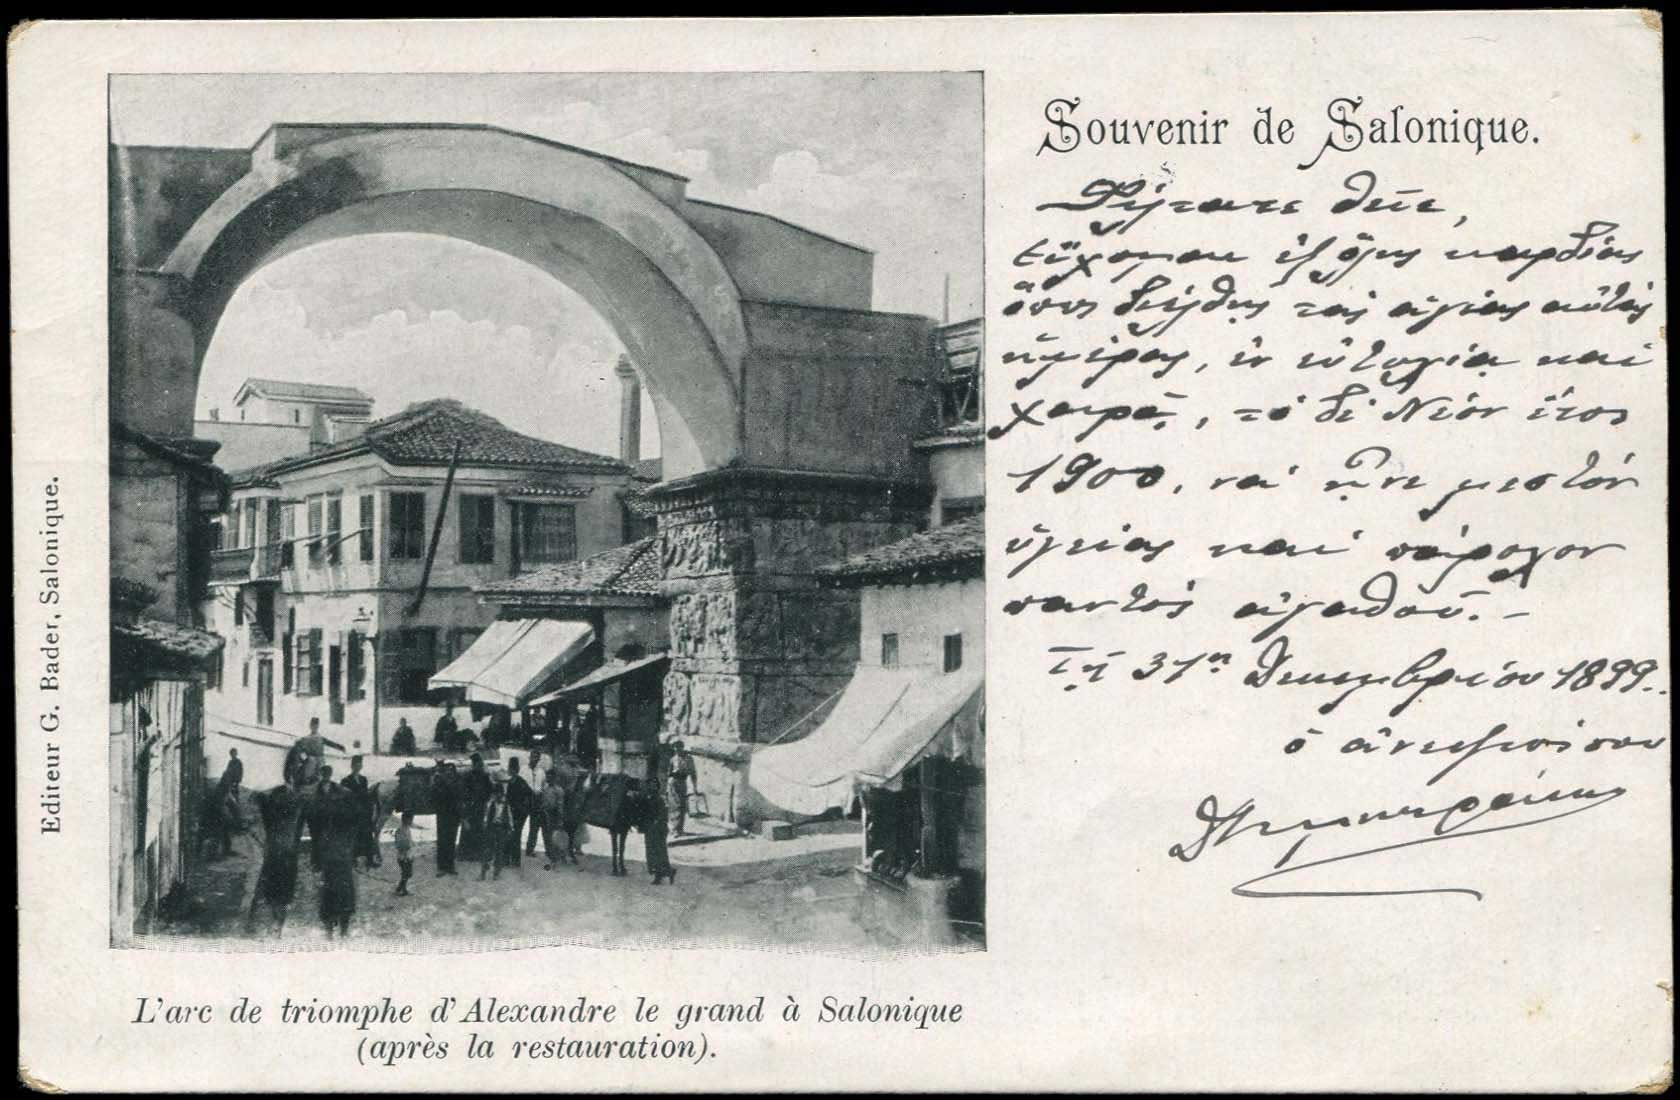 Souvenir de Salonique.
Φίλτατε θεῖε,
εὔχομαι ἐξ ὅλης καρδίας
ὅπως διέλθῃς τὰς ἁγίας αὐτὰς
ἡμέρας, ἐν εὐτυχίᾳ καὶ
χαρᾷ, τὸ δὲ Νέον ἔτος
1900, νὰ ᾖνε μεστὸν
ὑγείας καὶ πάροχον
παντὸς ἀγαθοῦ. -
Τῇ 31ῃ Δεκεμβρίου 1899..
ὁ ἀνεψιός σου
Editeur G. Bader, Salonique.
L'arc de triomphe d'Alexandre le grand à Salonique
(après la restauration).